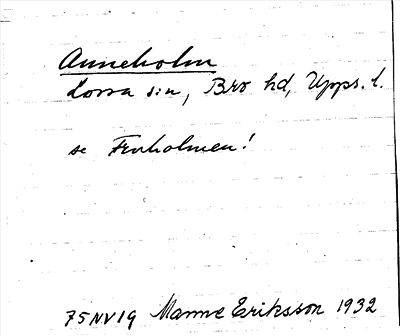 Anneholm
Lossa s:n, Bro hd, Upps. l.
se Fruholmen!
75NV19 Manne Eriksson 1932